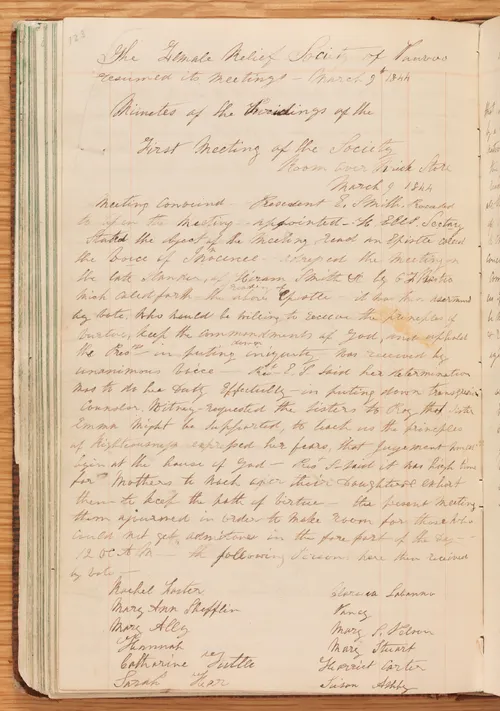 123
The Female Relief Society of Nauvoo
resumed its meetings - March 9th 1844
Minutes of the Procidings of the
First Meeting of the Society
Room over Brick Store
March 9 1844
Meeting convound - President E. Smith Preceded
to open the meeting - appointed - H Ells. Sectary
Stated the object of the meeting read an Epistle caled
the Voice of Inocence - the meeting on
the late slander, of Hiram Smith & by O F
wich caled forth the above Epistle - it was then
by Vote, Who would be willing to receive the principles of
Virtue, keep the commandments of God, and uphold
the Prest in puting down iniquity was received by
unanimous Voice - Prest E. S said her determination
was to do her Duty Effectully - in puting down transgression
Counslor, Witney requested the Sisters to Pray, that Sister
Emma might be supported, to teach us the principles
of Righteousness expressed her fears, that Jugement
begin at the house of God - Prest S said it was high time
for Mothers to Wach over their Daughters & exhort
them to keep the path of Virtue - the present meeting
them ajourned in order to make room for those who
could not get admitance in the fore part of the day -
12 oc A M - the following Persons here then received
by vote -
Rachel
Mary Ann Shefflin
Mary Alley
Hannah
Catharine Tuttle
Sarah
Nancy
Mary
Mary Stuart
Harriet Carter
Susan Ashby